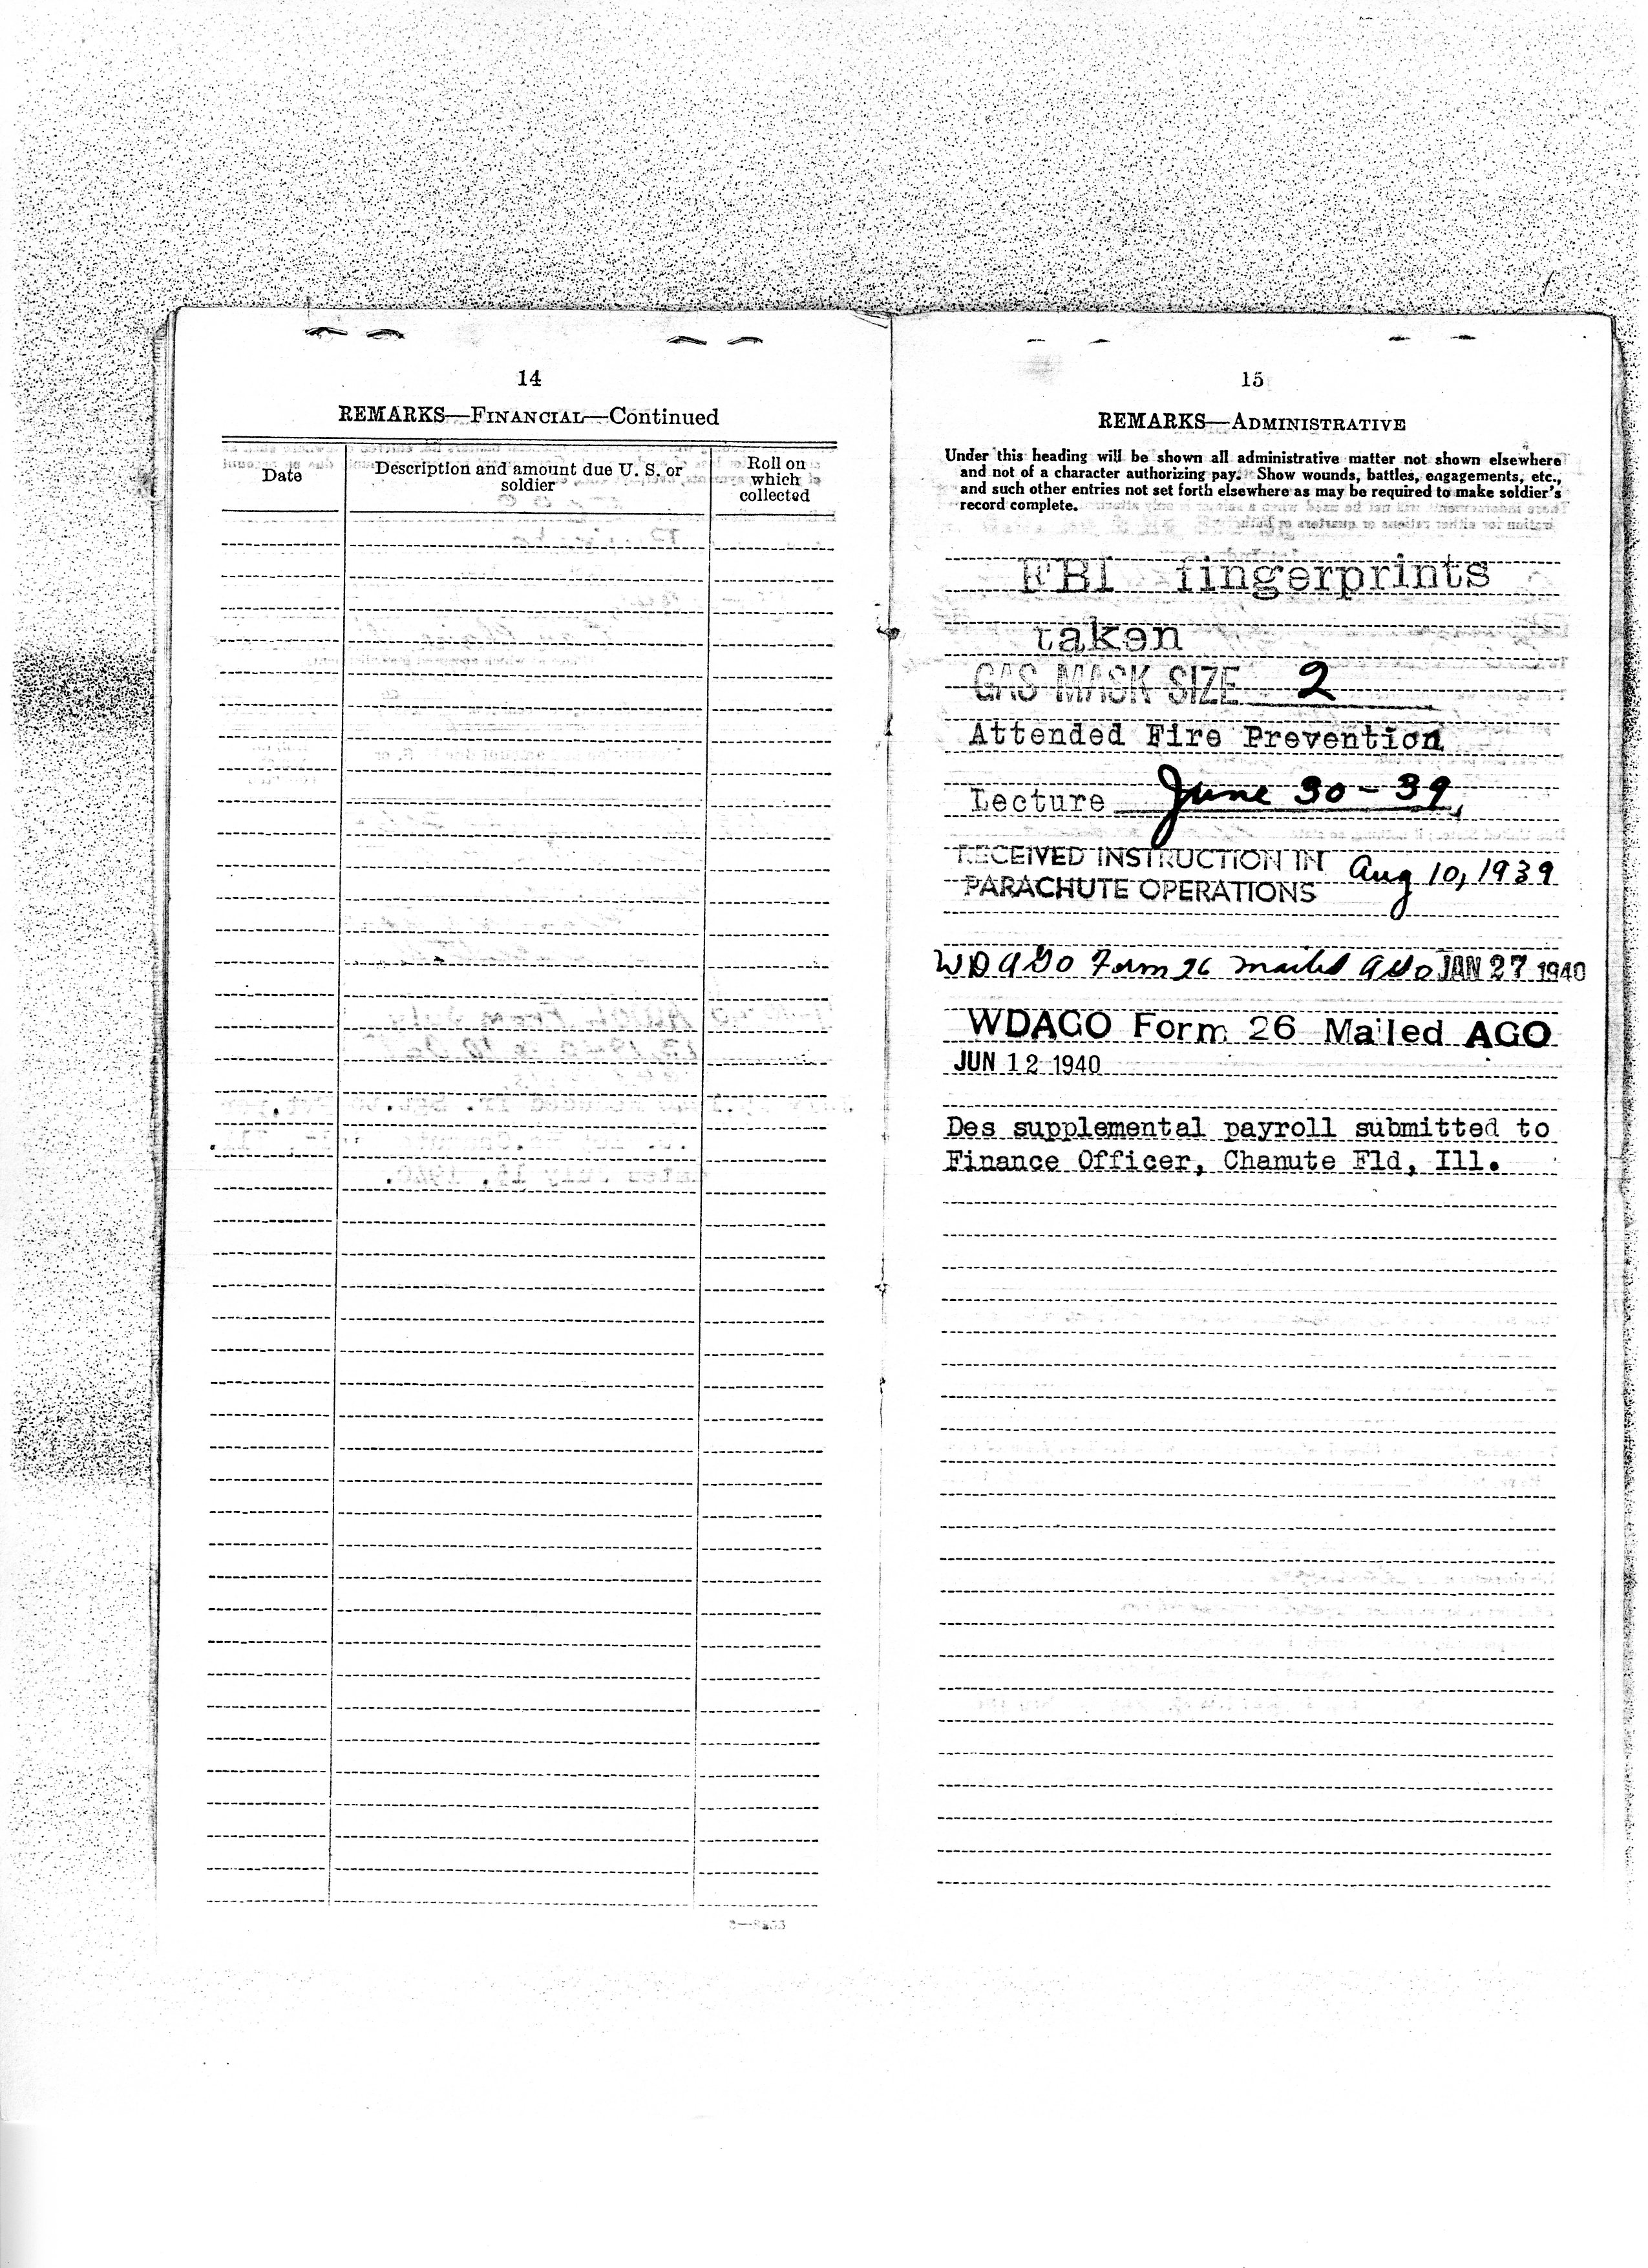 14
REMARKS—FINANCIAL—Continued
Date
Description and amount due U. S. or
soldier
Roll on
which
collected
15
REMARKS—ADMINISTRATIVE
Under this heading will be shown all administrative matter not shown elsewhere
and not of a character authorizing pay. Show wounds, battles, engagements, etc.,
and such other entries not set forth elsewhere as may be required to make soldier's
record complete.
FBI fingerprints
taken
GAS MASK SIZE 2
Attended Fire Prevention
Lecture June 30-39,
RECEIVED INSTRUCTION IN
PARACHUTE OPERATIONS Aug 10, 1939
WDAGO Form 26 mailed AGO JAN 27 1940
WDAGO Form 26 Mailed AGO
JUN 12 1940
Des supplemental payroll submitted to
Finance Officer, Chanute Fld, Ill.